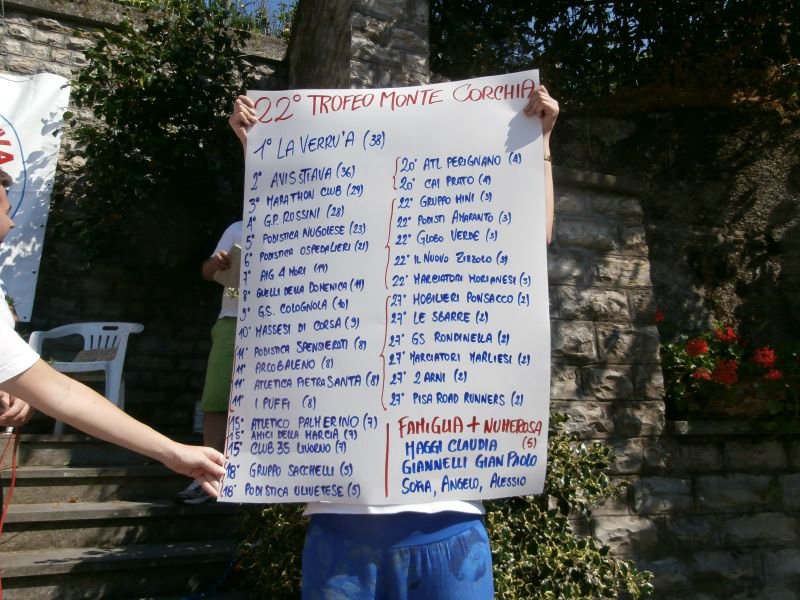 22° TROFEO MONTE CORCHIA
1° LA VERRU'A (38)
2° AVIS STIAVA (36)
3° MARATHON CLUB (29)
4° G.P. ROSSINI (28)
5° PODISTICA NUGOLESE (23)
6° PODISTICA OSPEDALIERI (21)
7° AIG 4 MORI (19)
8° QUELLI DELLA DOMENICA (11)
9° G.S. COLOGNOLA (10)
10° MASSESI DI CORSA (9)
11° PODISTICA SPENSIEROTI (8)
11° ARCOBALENO (8)
11° ATLETICA PIETRASANTA (8)
11° I PUFFI (8)
15° ATLETICO PALMERINO (7)
15° AMICI DELLA MARCIA (7)
15° CLUB 35 LIVORNO (7)
18° GRUPPO SACCHELLI (5)
18° PODISTICA ULIVETESE (5)
20° ATL PERIGNANO (4)
20° CAI PRATO (4)
22° GRUPPO MINI (3)
22° PODISTI AMARANTO (3)
22° GLOBO VERDE (3)
22° IL NUOVO ZIBBOLO (3)
22° MARCIATORI MORIANESI (3)
27° MOBILIERI PONSACCO (2)
27° LE SBARRE (2)
27° GS RONDINELLA (2)
27° MARCIATORI MARLIESI (2)
27° 2 ARNI (2)
27° PISA ROAD RUNNERS (2)
FAMIGLIA + NUMEROSA
MAGGI CLAUDIA (5)
GIANNELLI GIAN PAOLO
SOFIA, ANGELO, ALESSIO